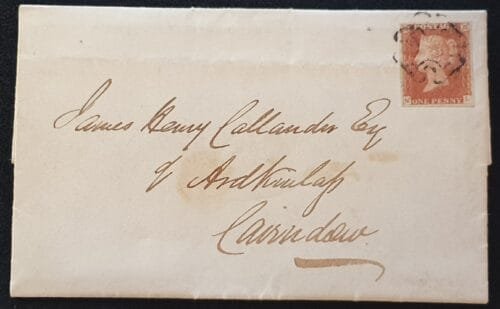 POSTAGE
ONE PENNY
James Henry Callander Esq
of Ardkinlass
Cairndow.